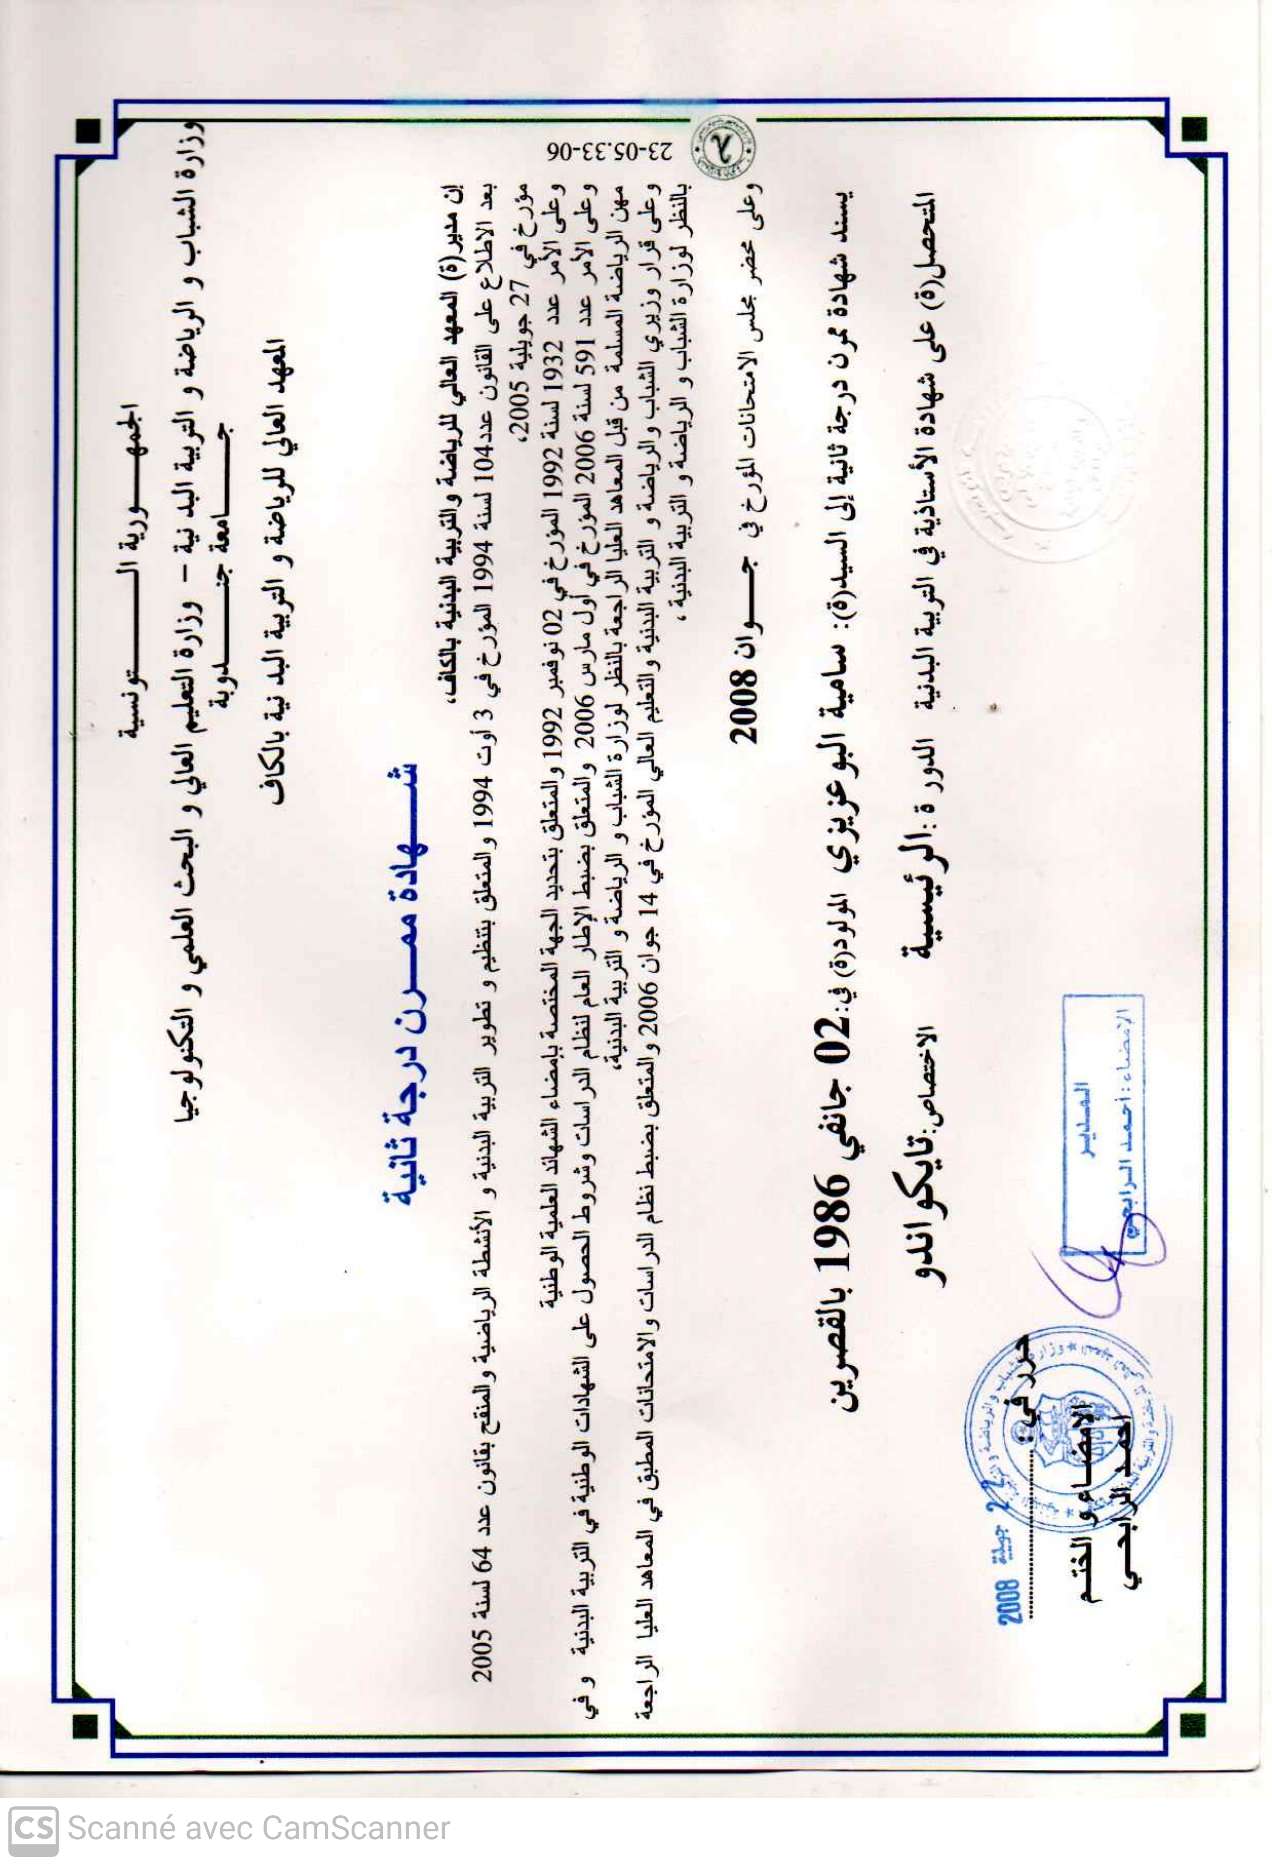 الجمهـــورية التـــــونسية
وزارة الشباب و الرياضة و التربية البدنية – وزارة التعليم العالي و البحث العلمي و التكنولوجيا
جـــامعة جنــــدوبة
المعهد العالي للرياضة و التربية البدنية بالكاف
شـــهادة ممـــرن درجة ثانية
إن مدير(ة) المعهد العالي للرياضة والتربية البدنية بالكاف،
بعد الاطلاع على القانون عدد104 لسنة 1994 المؤرخ في 3 أوت 1994 والمتعلق بتنظيم و تطوير التربية البدنية و الأنشطة الرياضية والمنقح بقانون عدد 64 لسنة 2005
مؤرخ في 27 جويلية 2005،
وعلى الأمر عدد 1932 لسنة 1992 المؤرخ في 02 نوفمبر 1992 والمتعلق بتحديد الجهة المختصة بإمضاء الشهائد العلمية الوطنية
وعلى الأمر عدد 591 لسنة 2006 المؤرخ في أول مارس 2006 والمتعلق بضبط الإطار العام لنظام الدراسات وشروط الحصول على الشهادات الوطنية في التربية البدنية و في
مهن الرياضة المسلمة من قبل المعاهد العليا الراجعة بالنظر لوزارة الشباب و الرياضة و التربية البدنية،
وعلى قرار وزيري الشباب والرياضة و التربية البدنية والتعليم العالي المؤرخ في 14 جوان 2006 والمتعلق بضبط نظام الدراسات والامتحانات المطبق في المعاهد العليا الراجعة
بالنظر لوزارة الشباب و الرياضة و التربية البدنية ،
23-05.33-06
وعلى محضر مجلس الامتحانات المؤرخ في جـــوان 2008
يسند شهادة ممرن درجة ثانية إلى السيد(ة): سامية البوعزيزي المولود(ة) في:02 جانفي 1986 بالقصرين
المتحصل(ة) على شهادة الأستاذية في التربية البدنية الدورة :الرئيسية الاختصاص:تايكواندو
حرر في:
22 جويلية 2008
الإمضاء و الختم
أحمد الرابحي
المدير
الإمضاء : أحمد الرابحي
CS Scanné avec CamScanner